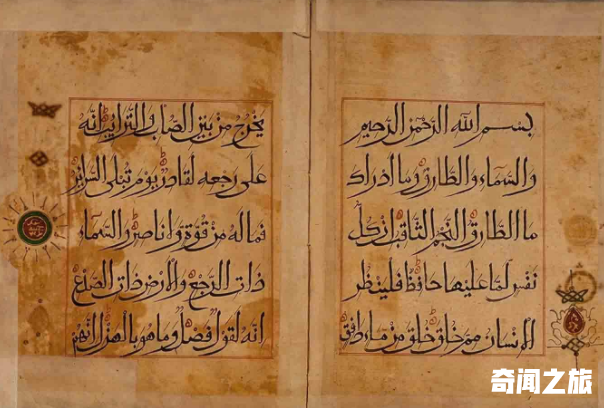 بسم الله الرحمن الرحيم
والسماء والطارق وما ادراك
ما الطارق النجم الثاقب ان كل
نفس لما عليها حافظ فلينظر
الانسان مم خلق خلق من ماء دافق
يخرج من بين الصلب والترائب انه
على رجعه لقادر يوم تبلى السرائر
فما له من قوة ولا ناصر والسماء
ذات الرجع والارض ذات الصدع
انه لقول فصل وما هو بالهزل انهم
奇闻之旅